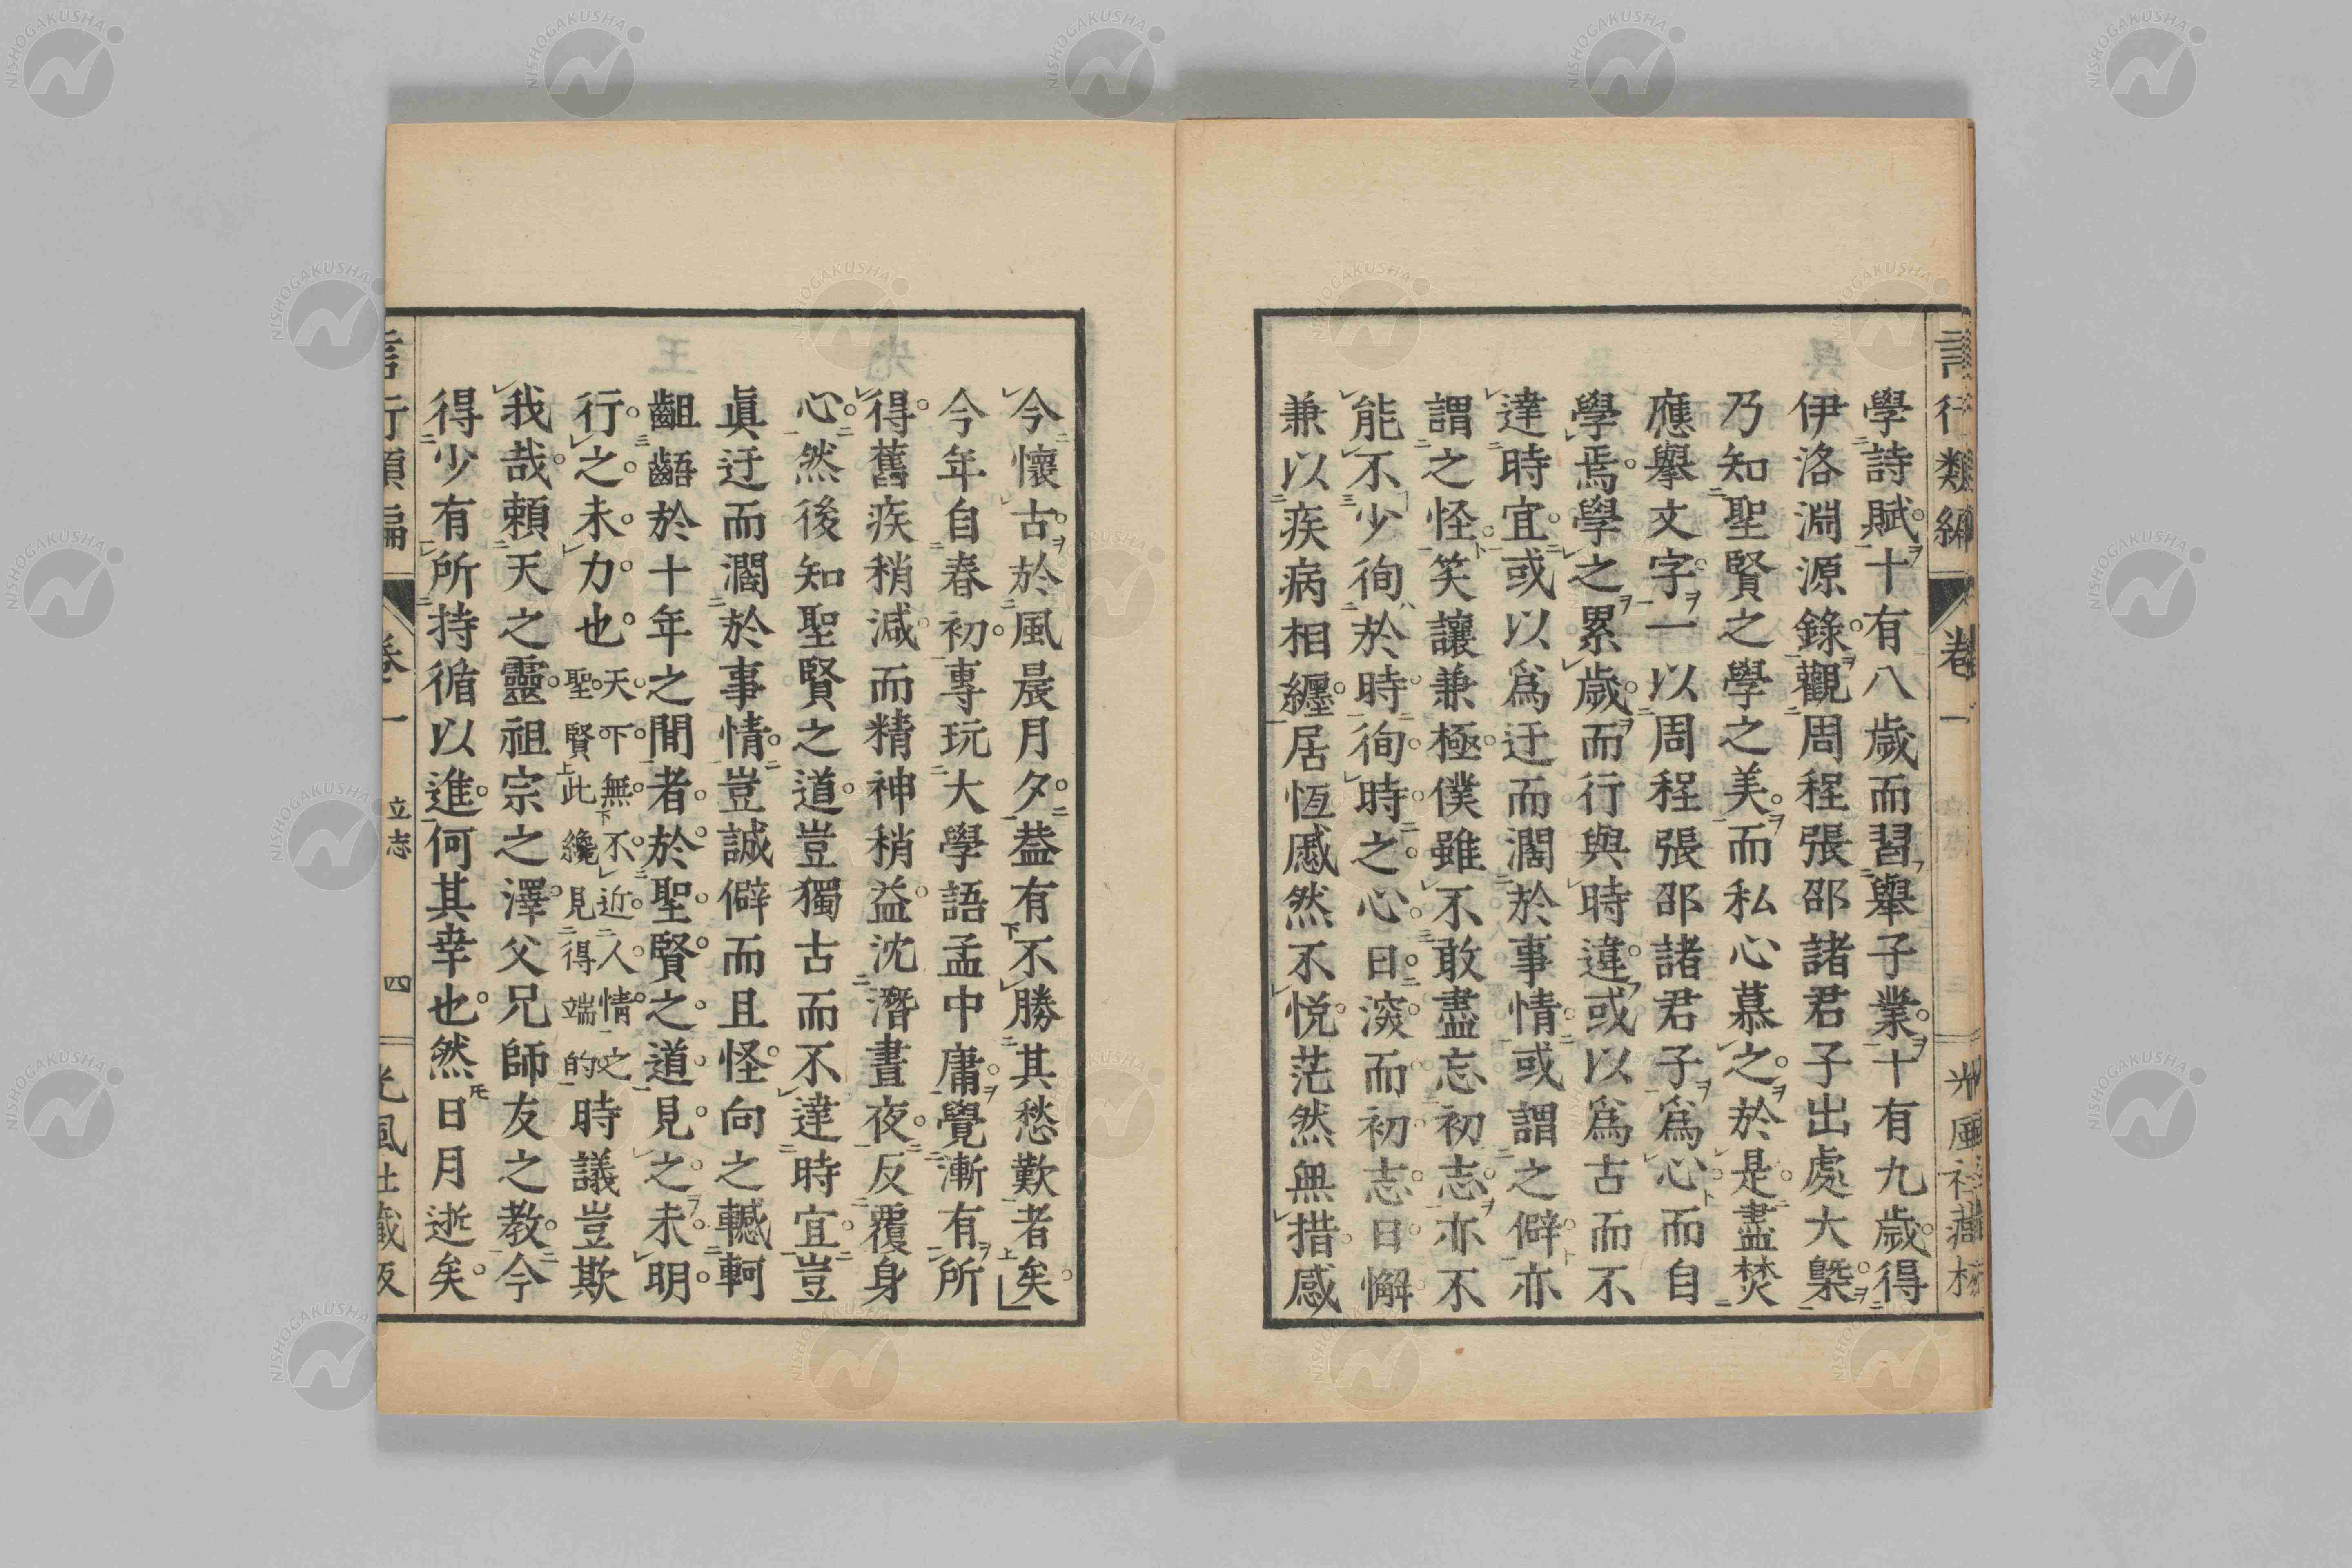 言行類編 卷一 光風社藏板
學詩賦十有八歲而習擧子業十有九歲得
伊洛淵源錄觀周程張邵諸君子出處大槩
乃知聖賢之學之美而私心慕之於是盡焚
應擧文字一以周程張邵諸君子爲心而自
學焉學之累歲而行與時違或以爲古而不
達時宜或以爲迂而濶於事情或謂之僻亦
謂之怪笑讓兼極僕雖不敢盡忘初志亦不
能不少徇於時徇時之心日深而初志日懈
兼以疾病相纏居恆慼然不悅茫然無措感
今懷古於風晨月夕葢有不勝其愁歎者矣
今年自春初專玩大學語孟中庸覺漸有所
得舊疾稍減而精神稍益沈潛晝夜反覆身
心然後知聖賢之道豈獨古而不達時宜豈
眞迂而濶於事情豈誠僻而且怪向之轗軻
齟齬於十年之間者於聖賢之道見之未明
行之未力也天下無不近人情之聖賢此纔見得端的時議豈欺
我哉賴天之靈祖宗之澤父兄師友之教今
得少有所持循以進何其幸也然日月逝矣
言行類編 卷一 立志 四 光風社藏板
NISHOGAKUSHA